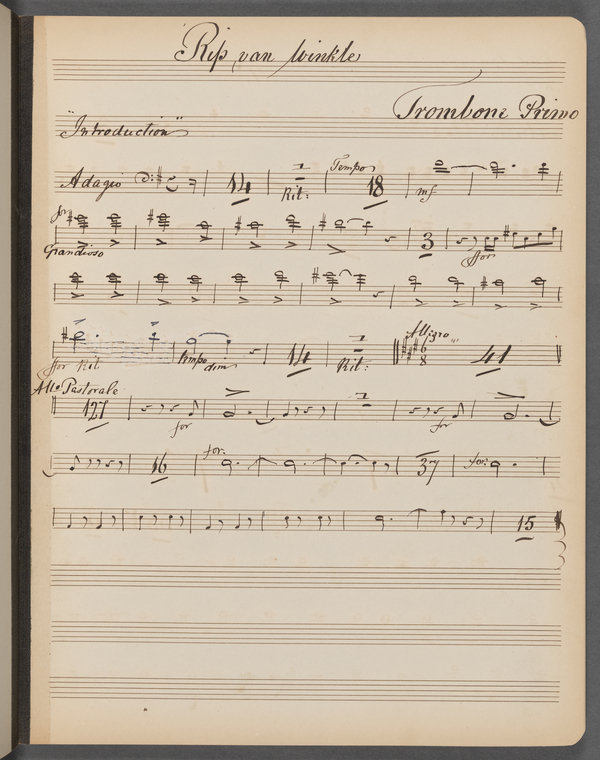 Rip van Winkle
Trombone Primo
"Introduction"
Adagio 14 Rit: Tempo 18 mf
for
Grandioso 3 ffor
ffor Rit Tempo dim 14 Rit: Allegro 6 8 41
All° Pastorale
127 for for
16 for: 37 for:
15